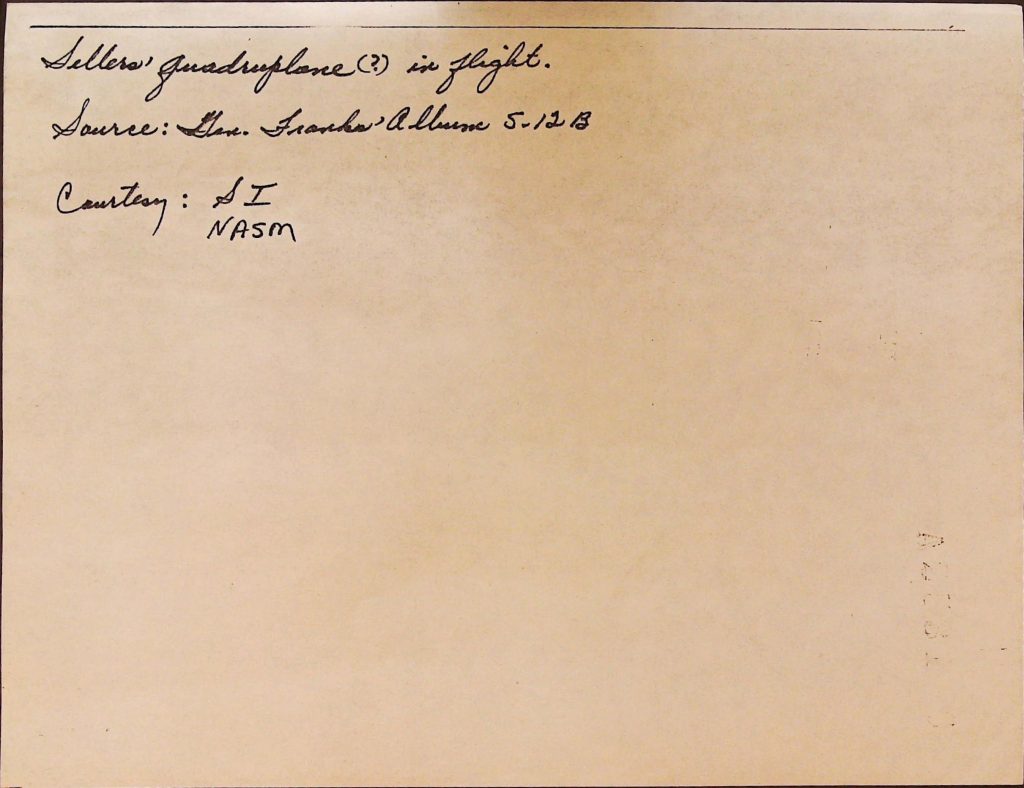 Sellers' quadruplane (?) in flight.
Source: Gen. Franks' Album 5-12 B
Courtesy: S I
NASM